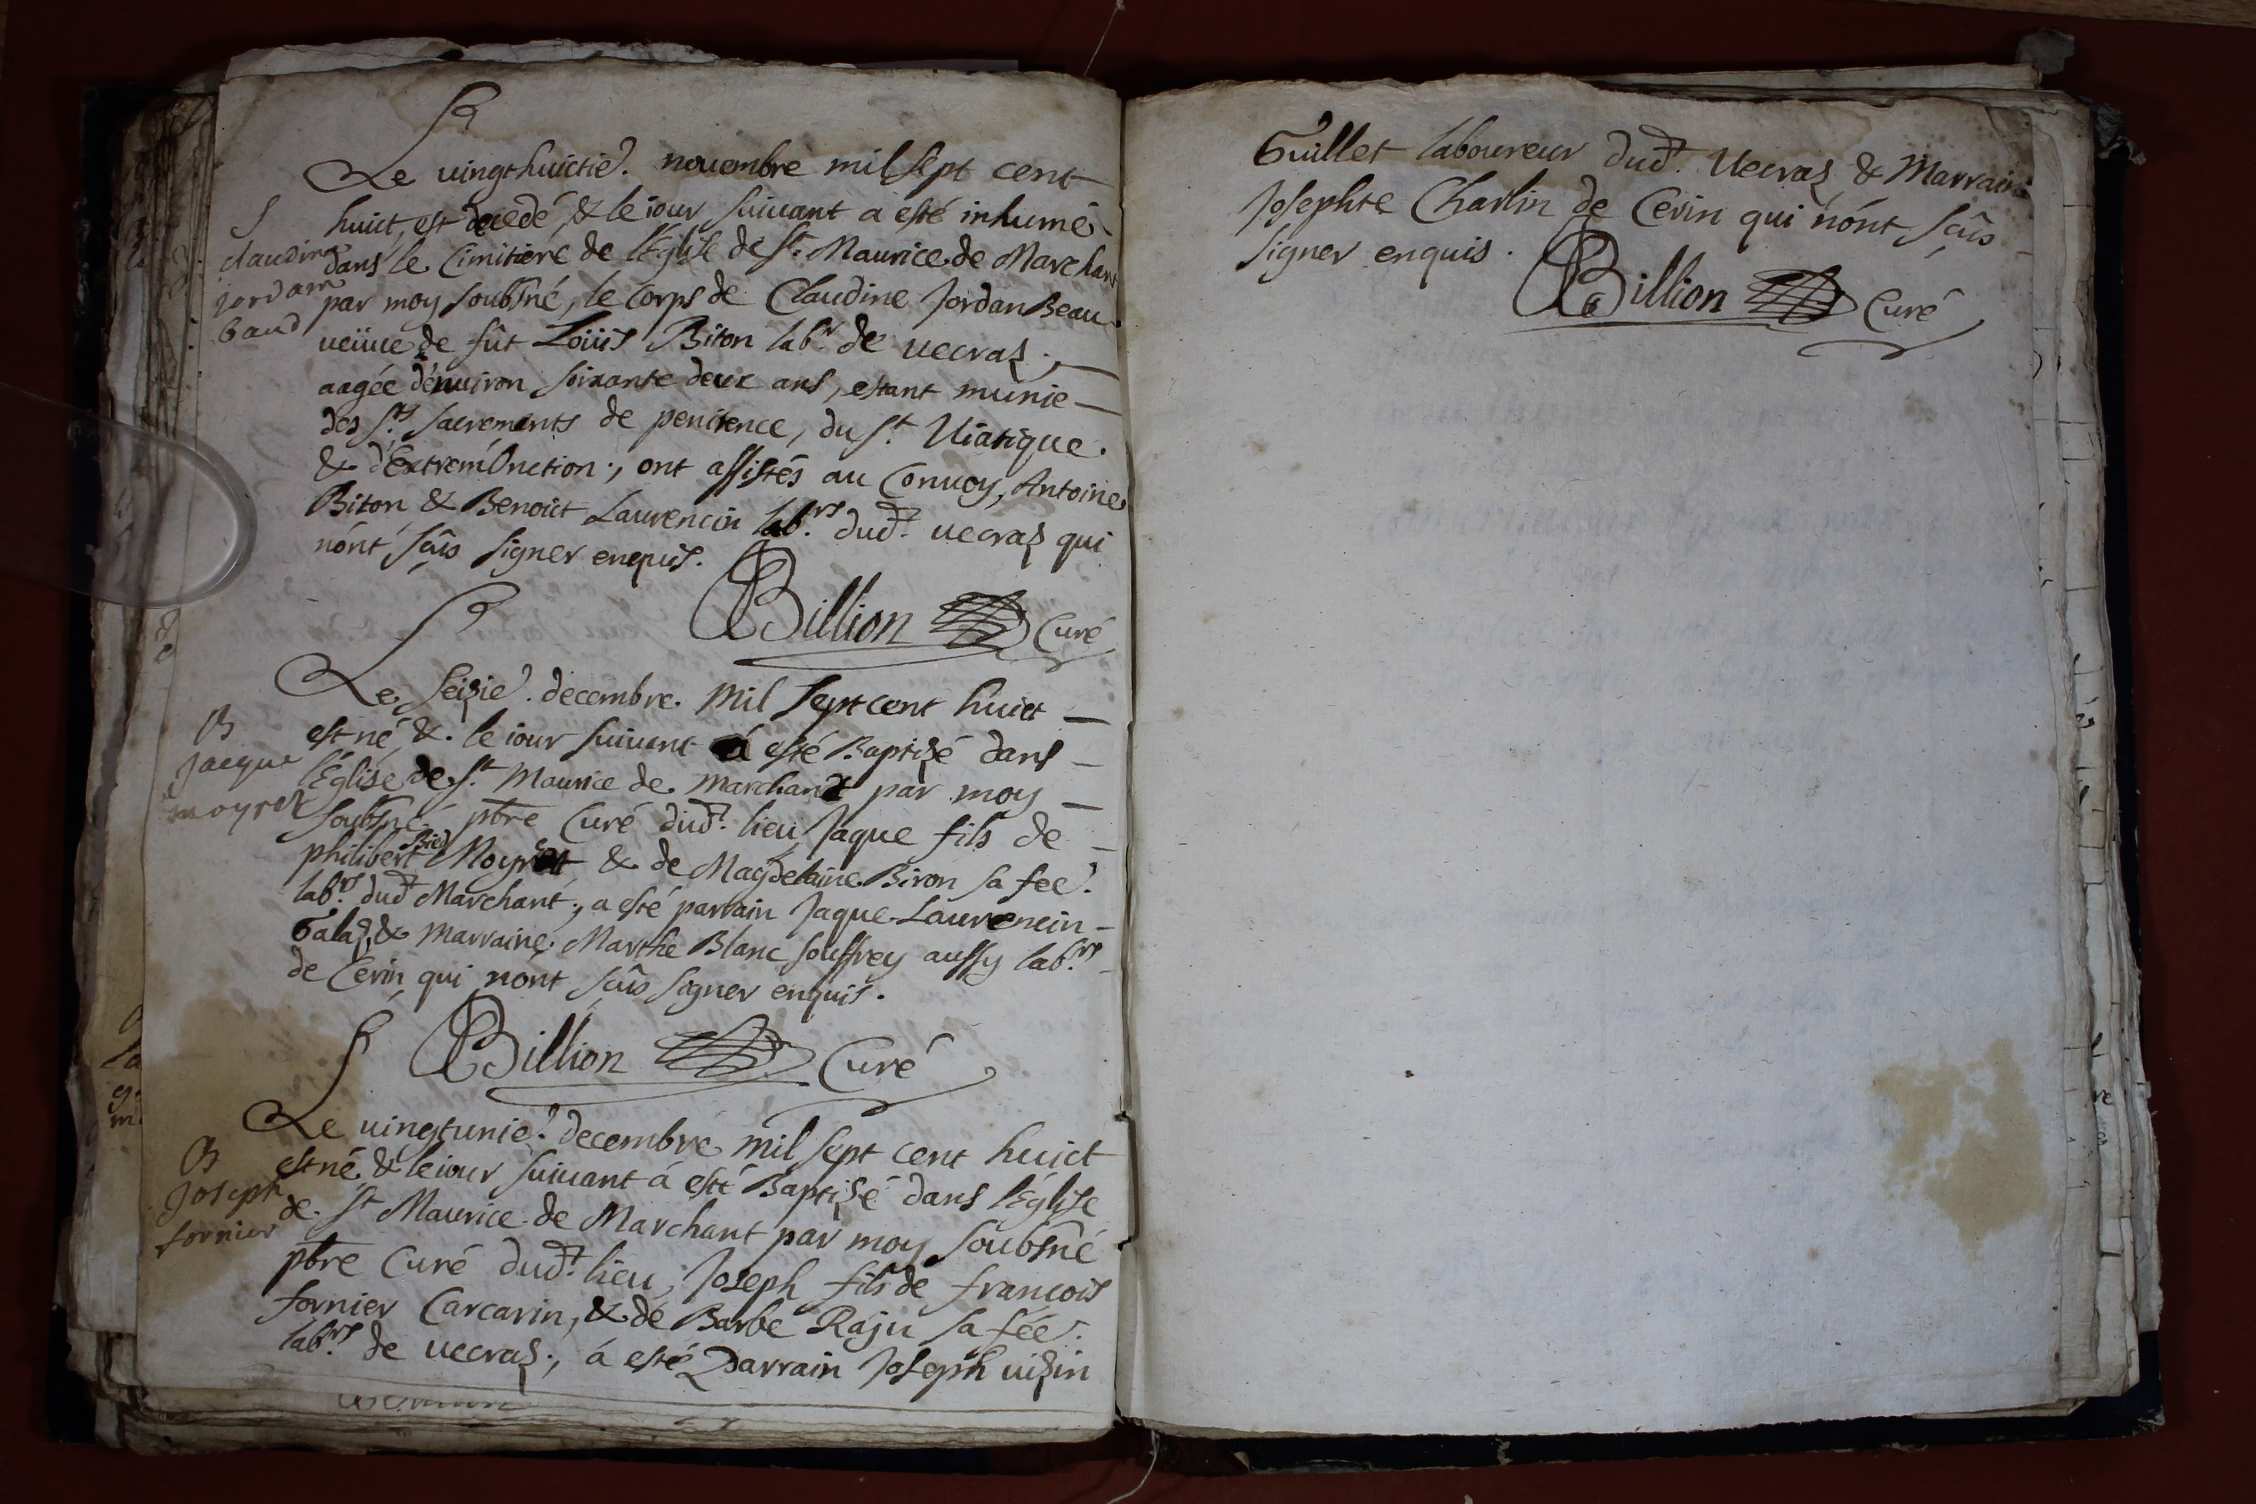 Le vingthuictie. nouembre mil sept cent
huict, est decedé, & le iour suiuant a esté inhumé
dans le Cimitiere de l'Eglise de St. Maurice de Marchant
par moy soubsné, le corps de Claudine Jordan Beau
veüue de fût Loüis Biton labr. de vecras.,
aagée d'énuiron soixante deux ans, estant munie
des Sts. Sacrements de penitence, du St. Viatique.
& d'Extrem'Onction., ont assistés au Convoy, Antoine
Biton & Benoict Laurencin labrs. dudt. vecras qui
nónt sçûs signer enquis.
Billion Curé
S
claudine
jordam
baud
Le Seizie. decembre. mil sept cent huict
est né, &. le iour suiuant á esté Baptizé dans
l'Eglise de St. Maurice de Marchant par moy
soubsné ptre Curé dudt. lieu Jaque fils de
philibert Bied Moyret & de Magdelaine Biron sa fee.
labrs. dudt Marchant., a esté parrain Jaque Laurencin
Galas, & marraine. Marthe Blanc souffrey aussy labrs.
de Cerin qui nont sçûs signer enquis.
Billion Curé
B
Jacque
moyret
Le vingtunie. decembre mil sept cent huict
est né & le iour suiuant á esté Baptizé dans l'Église
de St Maurice de Marchant par moy soubsné
ptre Curé dudt. lieu, Joseph fils de françois
fornier Carcarin, & de Barbe Raju sa fée.
labrs. de vecras., á esté Parrain Joseph vizin
B
Joseph
fornier
Guillet laboureur dudt. Vecras & Marraine
Josephte Charlin de Cerin qui nónt sçûs
signer enquis.
Billion Curé